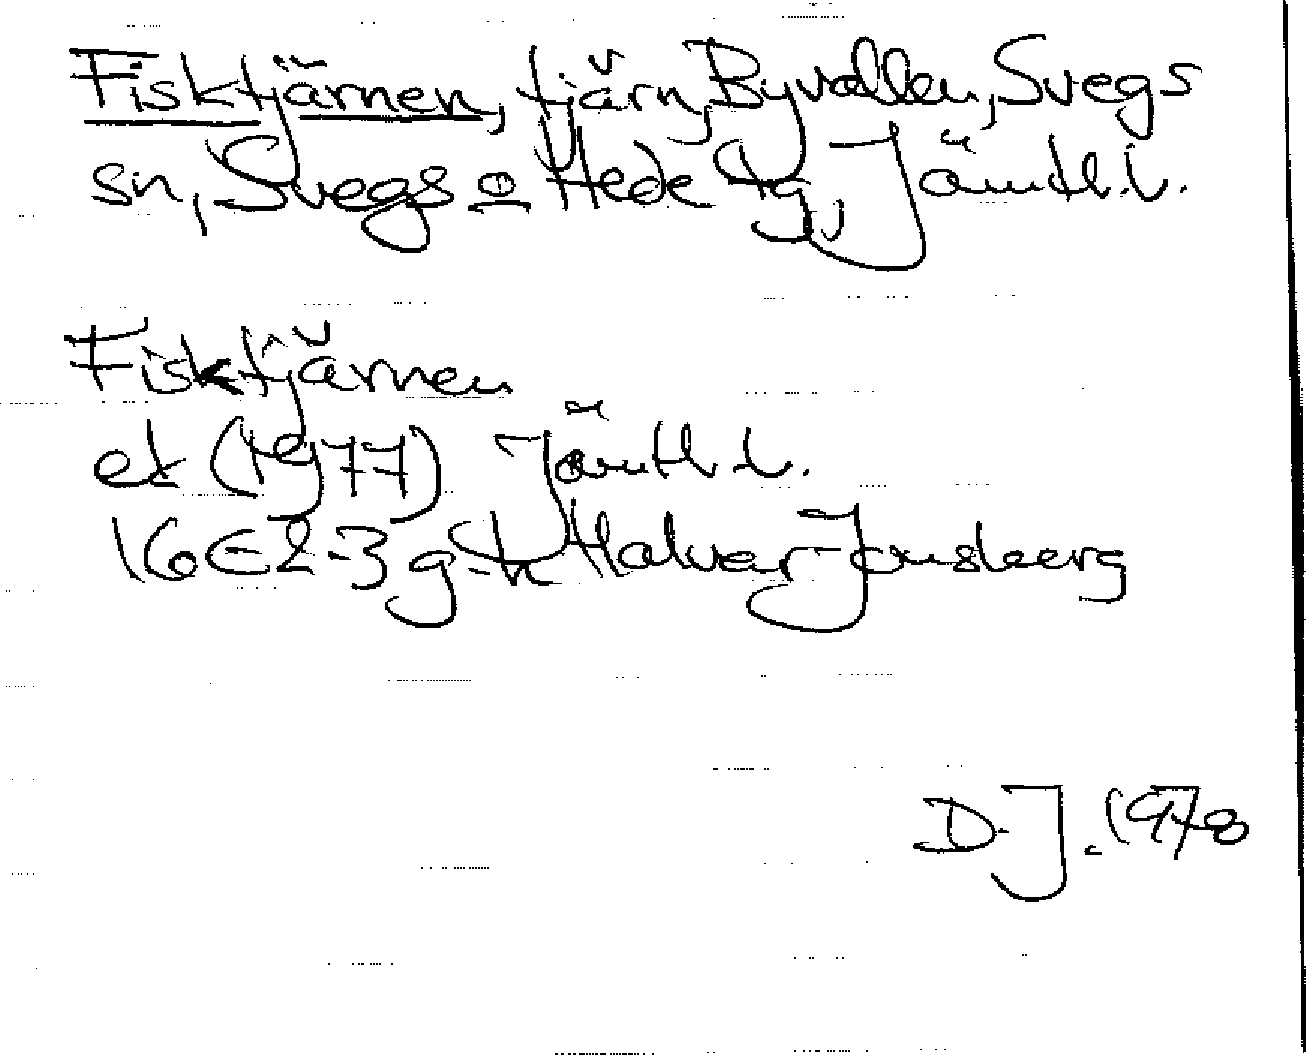 Fisktjärnen, tjärn, Byvallen, Svegs
sn, Svegs o Hede tg, Jämtl.l.
Fisktjärnen
ek (1977) Jämtl.l.
16E2-3 g-h Halvar Jonsberg
D.J. 1978